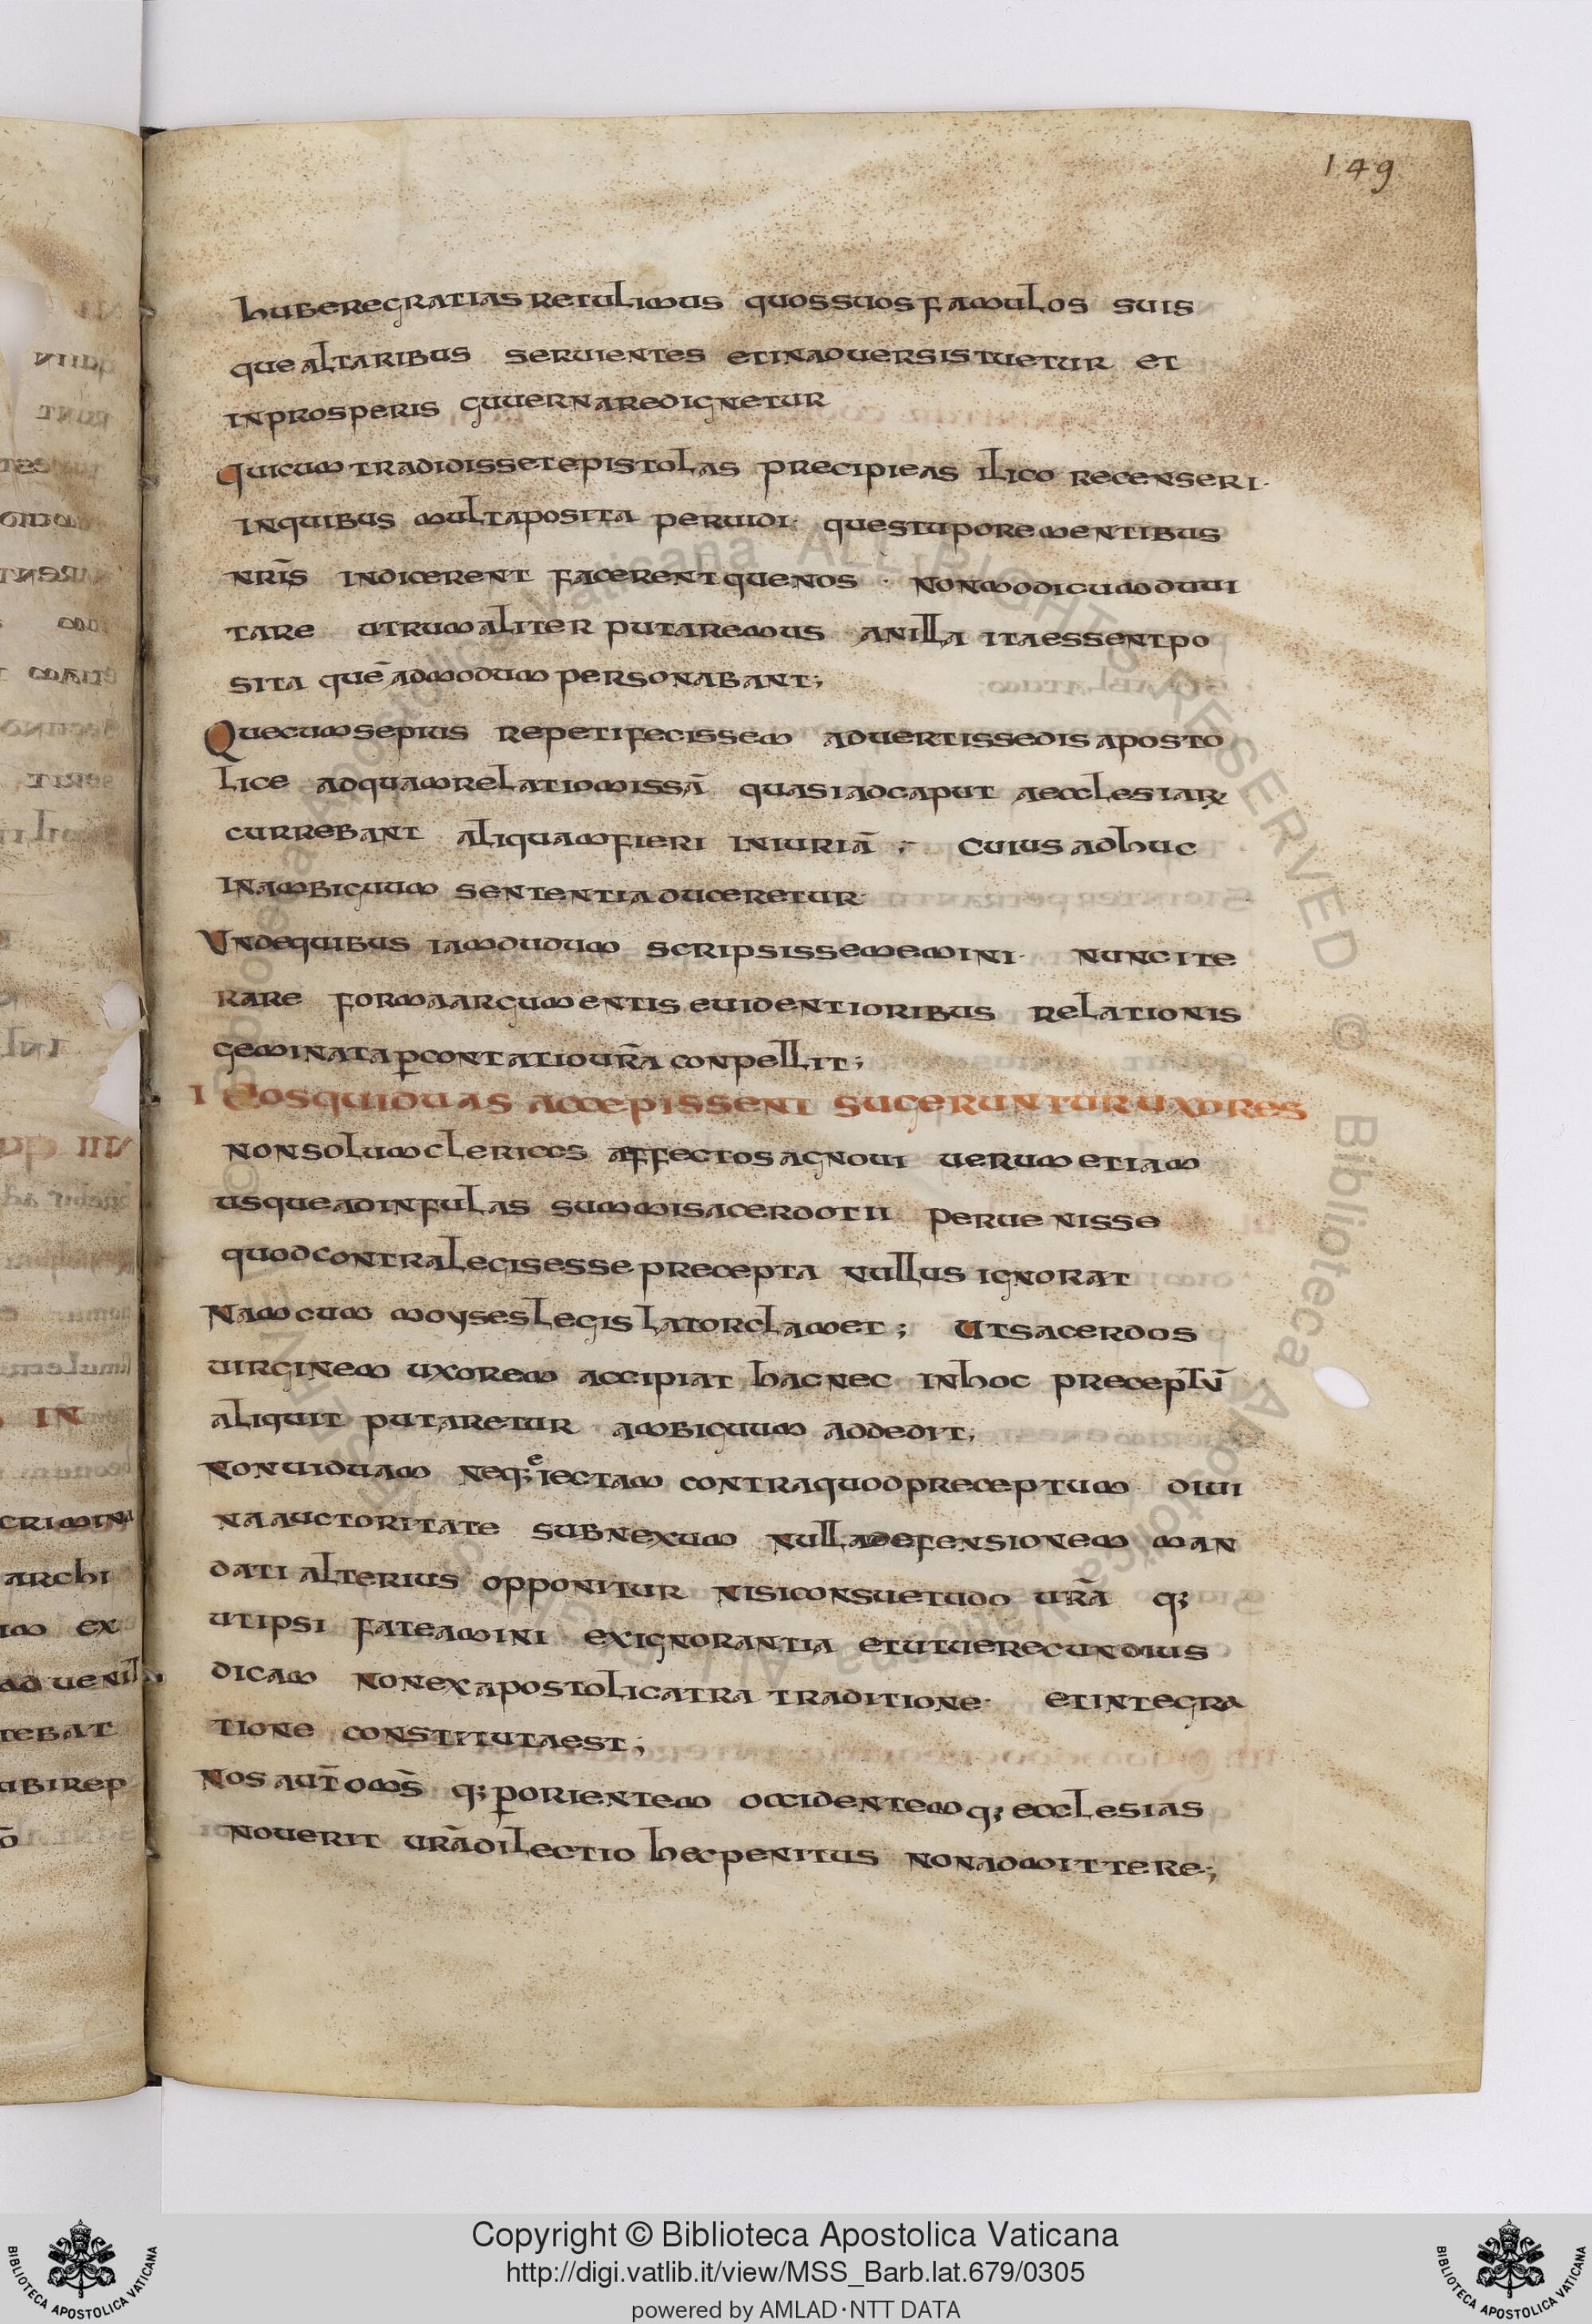 149
huberegratias retulimus quossuosfamulos suis
quealtaribus seruientes etinaduersistuetur et
inprosperis guuernaredignetur
Quicum tradidissetepistolas precipieas ilico recenseri·
inquibus multaposita peruidi· questuporementibus
nr̄is indicerent facerentquenos · nonmodicumduui
tare utrumaliter putaremus anilla itaessentpo
sita quē admodum personabant;
Quecumsepius repetifecissem aduertissedisaposto
lice adquamrelatiomissā quasiadcaput aecclesiarꝝ
currebant aliquamfieri iniuriā ; cuius adhuc
inambiguum sententiaduceretur·
Undequibus iamdudum scripsissememini· nuncite
rare formaargumentis euidentioribus relationis
geminataꝑcontatiour̄a conpellit;
I Eosquiduas accepissent sugerunturuxores
nonsolumclericos affectosagnoui uerumetiam
usqueadinfulas summisacerdotii peruenisse
quodcontralegisesseprecepta nullus ignorat
Namcum moyseslegislatorclamet; Utsacerdos
uirginem uxorem accipiat hacnec inhoc preceptū
aliquit putaretur ambiguum addedit;
nonuiduam neq;eiectam contraquodpreceptum diui
naauctoritate subnexum nulladefensionem man
dati alterius opponitur nisiconsuetudo ur̄a q;
utipsi fateamini exignorantia etutuerecundius
dicam nonexapostolicatra traditione· etintegra
tione constitutaest;
Nos aut̄ oms̄ q; ꝑorientem occidentemq; ecclesias
nouerit ur̄adilectio hecpenitus nonadmittere;
Copyright © Biblioteca Apostolica Vaticana
http://digi.vatlib.it/view/MSS_Barb.lat.679/0305
powered by AMLAD·NTT DATA